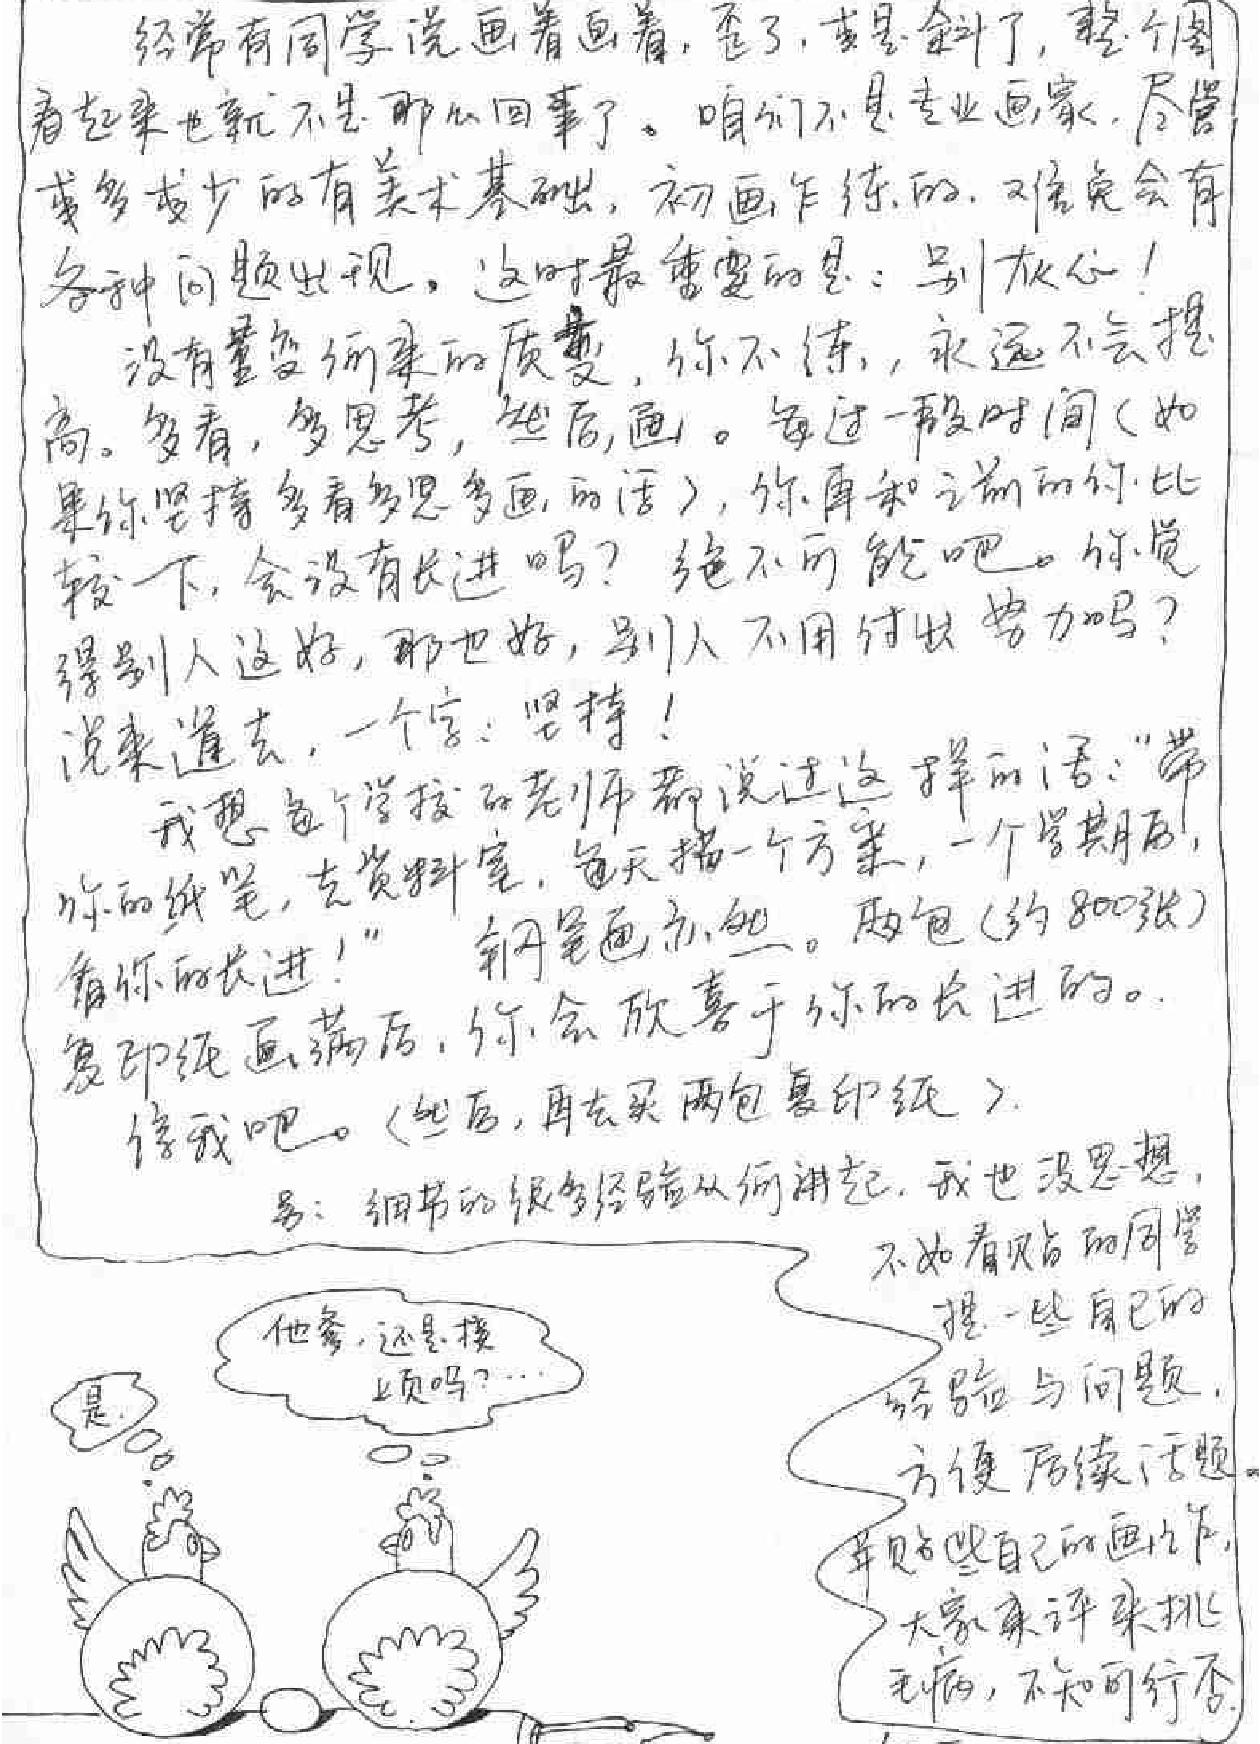 经常有同学说画着画着，歪了，或是斜了，整个图
看起来也就不是那么回事了。咱们不是专业画家，尽管
或多或少的有美术基础，初画乍练的，难免会有
各种问题出现。这时最重要的是：别灰心！
没有量变何来的质变，你不练，永远不会提
高。多看，多思考，然后，画。每过一段时间（如
果你坚持多看多思多画的话），你再和之前的你比
较一下，会没有长进吗？绝不可能吧。你觉
得别人这好，那也好，别人不用付出努力吗？
说来道去，一个字：坚持！
我想每个学校的老师都说过这样的话：“带
你的纸笔，去资料室，每天描一个方案，一个学期后，
看你的长进！” 钢笔画亦然。两包（约800张）
复印纸画满后，你会欣喜于你的长进的。
信我吧。（然后，再去买两包复印纸）.
另：细节的很多经验从何讲起，我也没思想，
不如看贴的同学
提一些自己的
经验与问题，
方便后续话题。
并贴些自己的画作，
大家来评来挑
毛病，不知可行否.
他爹，还是接
上页吗？...
是.